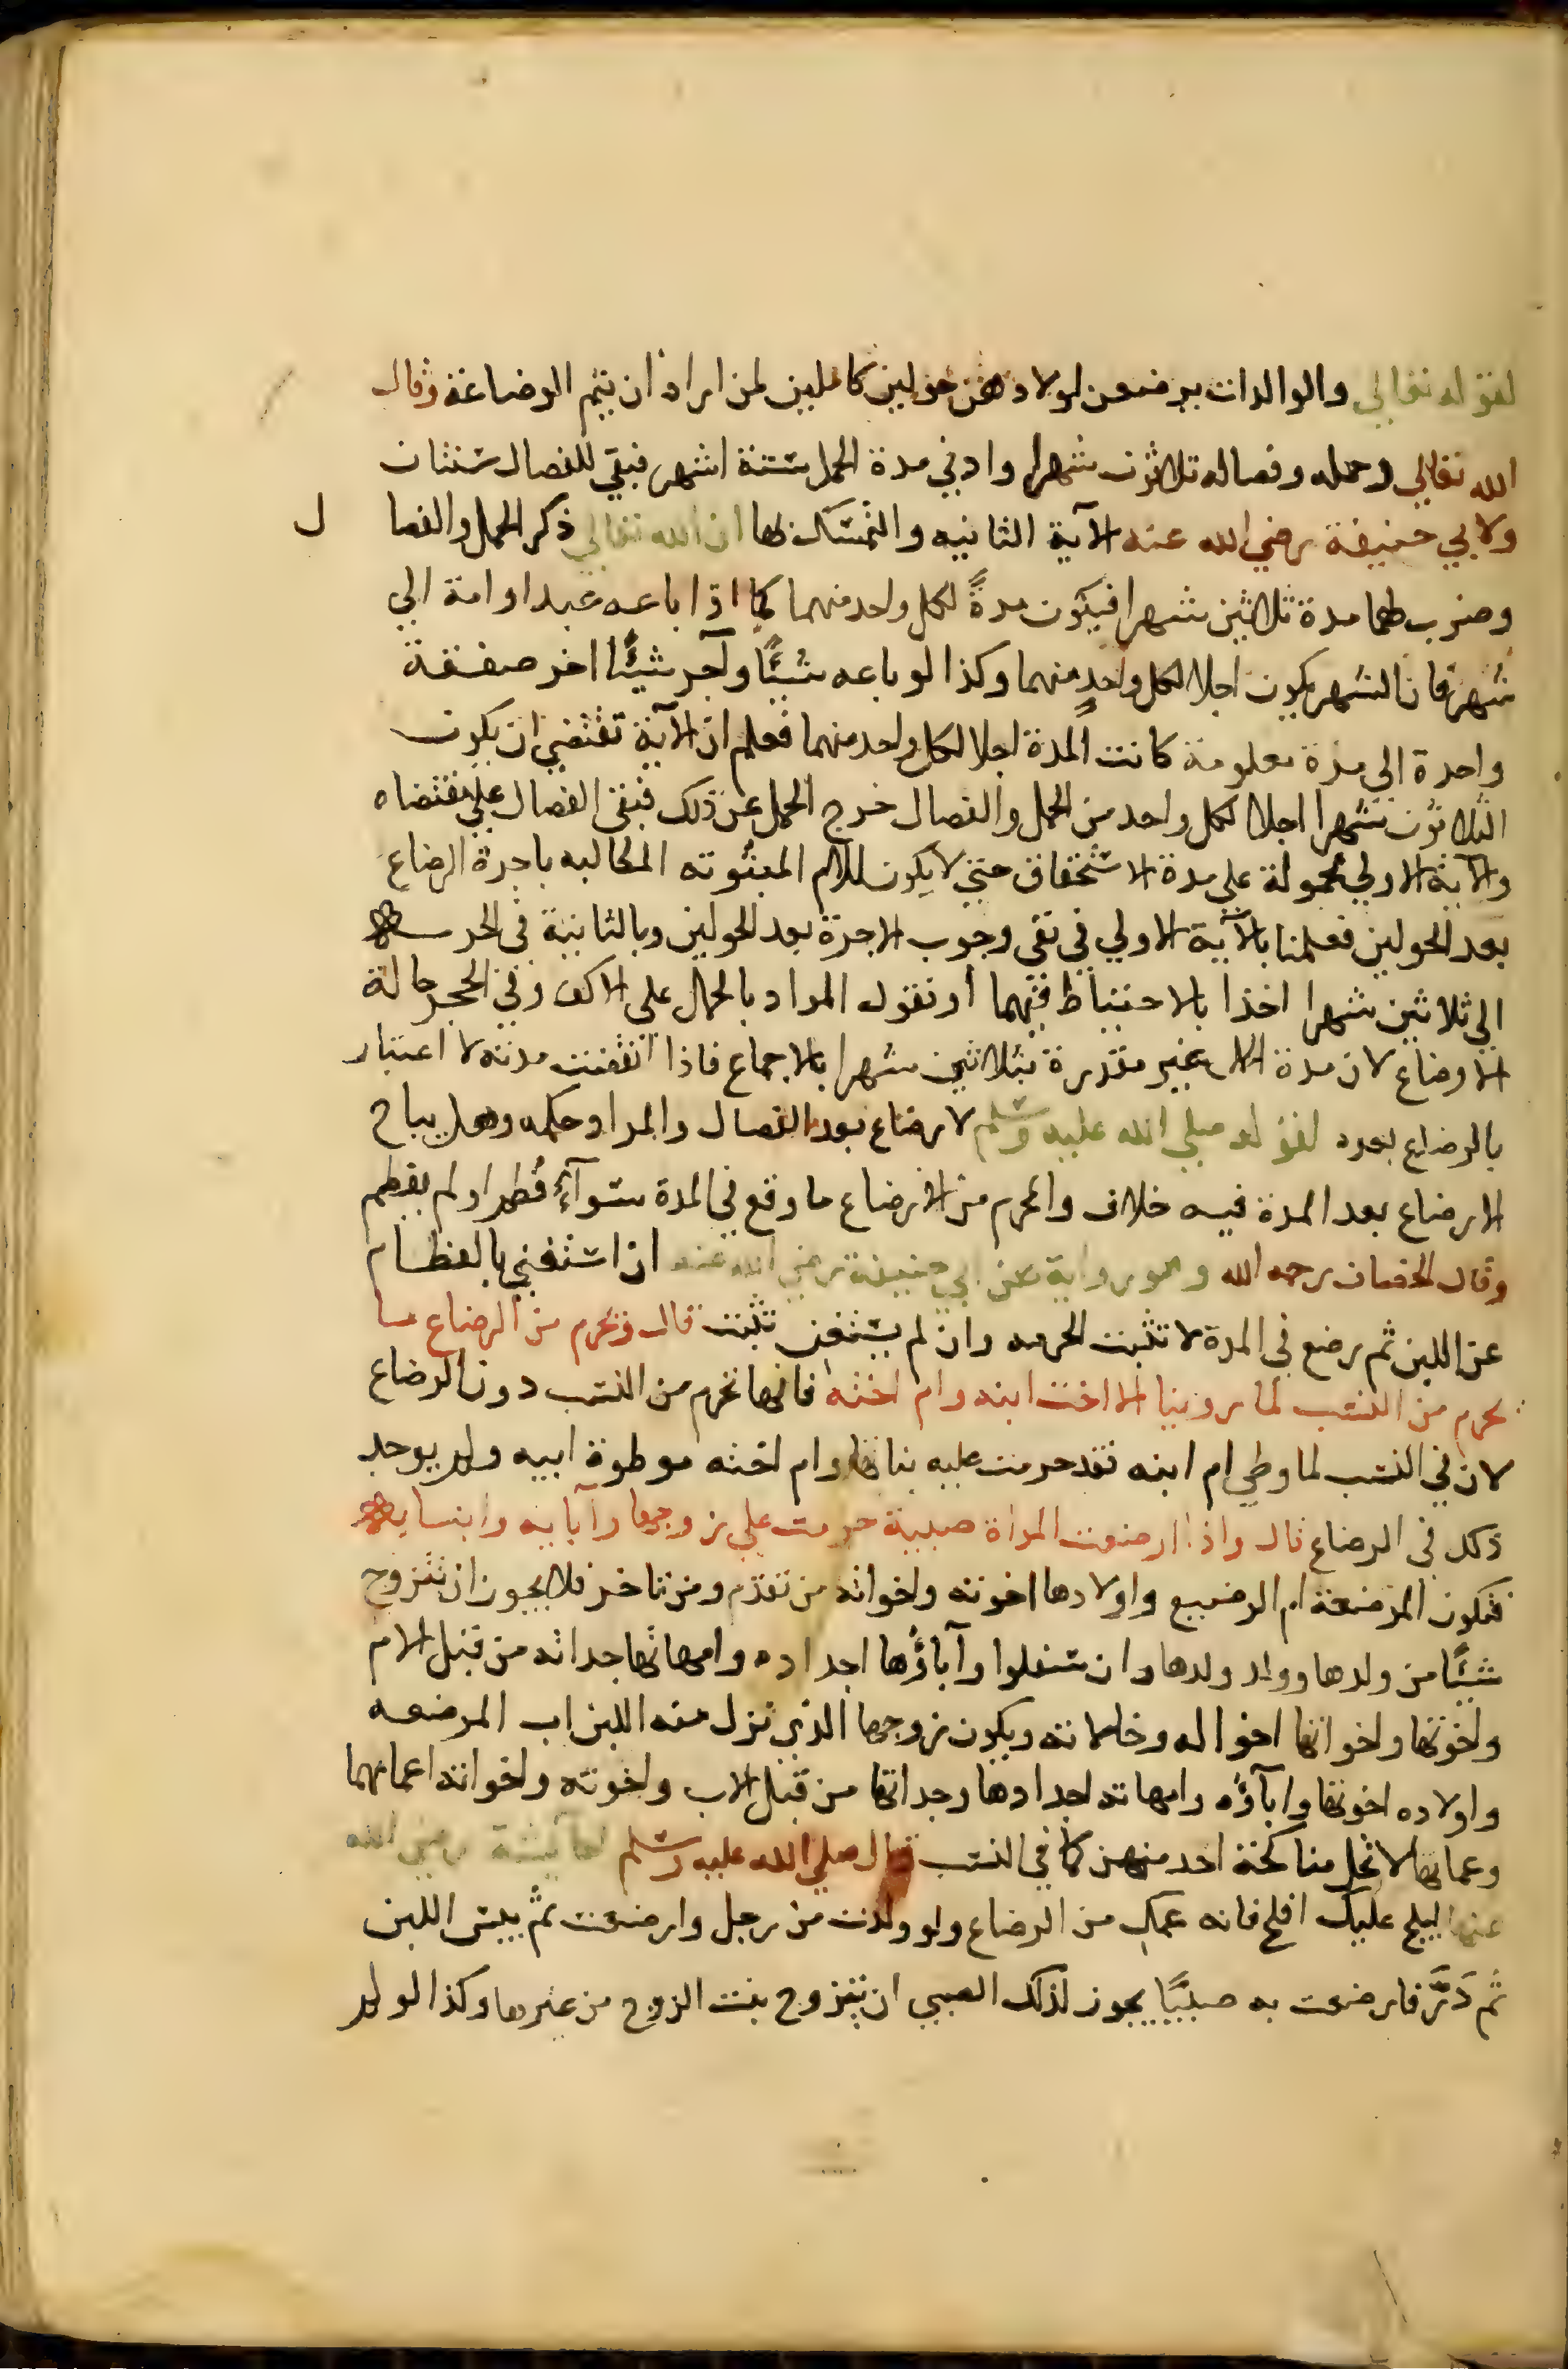 لقوله تعالي والوالدات يرضعن اولادهن حولين كاملين لمن اراد ان يتم الرضاعة وقال
الله تعالي وحمله وفصاله ثلاثون شهرا وادني مدة الحمل ستة اشهر فبقي للفصال سنتان
ولابي حنيفة رضي الله عنه الآية الثانيه والتمسك بها ان الله تعالي ذكر الحمل والفصال
وضرب لهما مدة ثلاثين شهرا فيكون مدةً لكل واحد منهما كما اذا باعه عبدا وامة الي
شهر فان الشهر يكون اجلا لكل واحدٍ منهما وكذا لو باعه شيئًا وآجر شيئًا اخر صفقة
واحدة الي مدة معلومة كانت المدة اجلا لكل واحد منهما فعلم ان الآية تقتضي ان يكون
الثلاثون شهرا اجلا لكل واحد من الحمل والفصال خرج الحمل عن ذلك فبقي الفصال علي مقتضاه
والآية الاولي محمولة علي مدة الاستحقاق حتي لا يكون للام المبتوته المطالبه باجرة الرضاع
بعد الحولين فعملنا بالآية الاولي في نفي وجوب الاجرة بعد الحولين وبالثانية في الحرمة
الي ثلاثين شهرا اخذا بالاحتياط فيهما او نقول المراد بالحمل علي الاكف وفي الحجر حالة
الارضاع لان مدة غير مقدرة بثلاثين شهرا بالاجماع فاذا انقضت مدته لا اعتبار
بالرضاع بعده لقوله صلي الله عليه وسلم لا رضاع بعد الفصال والمراد حكمه وهل يباح
الارضاع بعد المدة فيه خلاف والمحرم من الارضاع ما وقع في المدة سوآءً فُطم او لم يفطم
وقال الخصاف رحمه الله وهو رواية عن ابي حنيفة رضي الله عنه ان استغني بالفطام
عن اللبن ثم رضع في المدة لا تثبت الحرمه وان لم يستغن تثبت قال ويحرم من الرضاع ما
يحرم من النسب لما روينا الا اخت ابنه وام اخته فانها تحرم من النسب دون الرضاع
لان في النسب لما وطي ام ابنه فقد حرمت عليه بناتها وام اخته موطوة ابيه ولم يوجد
ذلك في الرضاع قال واذا ارضعت المراة صبية حرمت علي زوجها وآبايه وابنايه
فتكون المرضعة ام الرضيع واولادها اخوته واخواته من تقدم ومن تاخر فلا يجوز ان يتزوج
شيئًا من ولدها وولد ولدها وان سفلوا وآباؤُها اجداده وامهاتها جداته من قبل الام
واخوتها واخواتها اخواله وخالاته ويكون زوجها الذي نزل منه اللبن اب المرضعه
واولاده اخوتها وآبآؤه وامهاته اجدادها وجداتها من قبل الاب واخوته واخواته اعمامها
وعماتها لا تحل مناكحة احد منهن كما في النسب قال صلي الله عليه وسلم لعايشة رضي الله
عنها ليلج عليك افلح فانه عمك من الرضاع ولو ولدت من رجل وارضعت ثم يبس اللبن
ثم دَرَّ فارضعت به صبيًا يجوز لذلك الصبي ان يتزوج بنت الزوج من غيرها وكذا لو لم